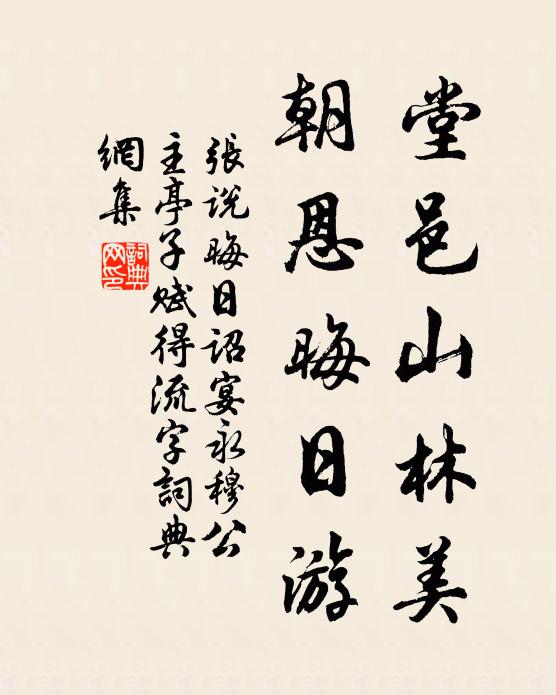 堂邑山林美
朝恩晦日游
張説晦日詔宴永穆公
主亭子賦得流字詞典
網集
詞典網印